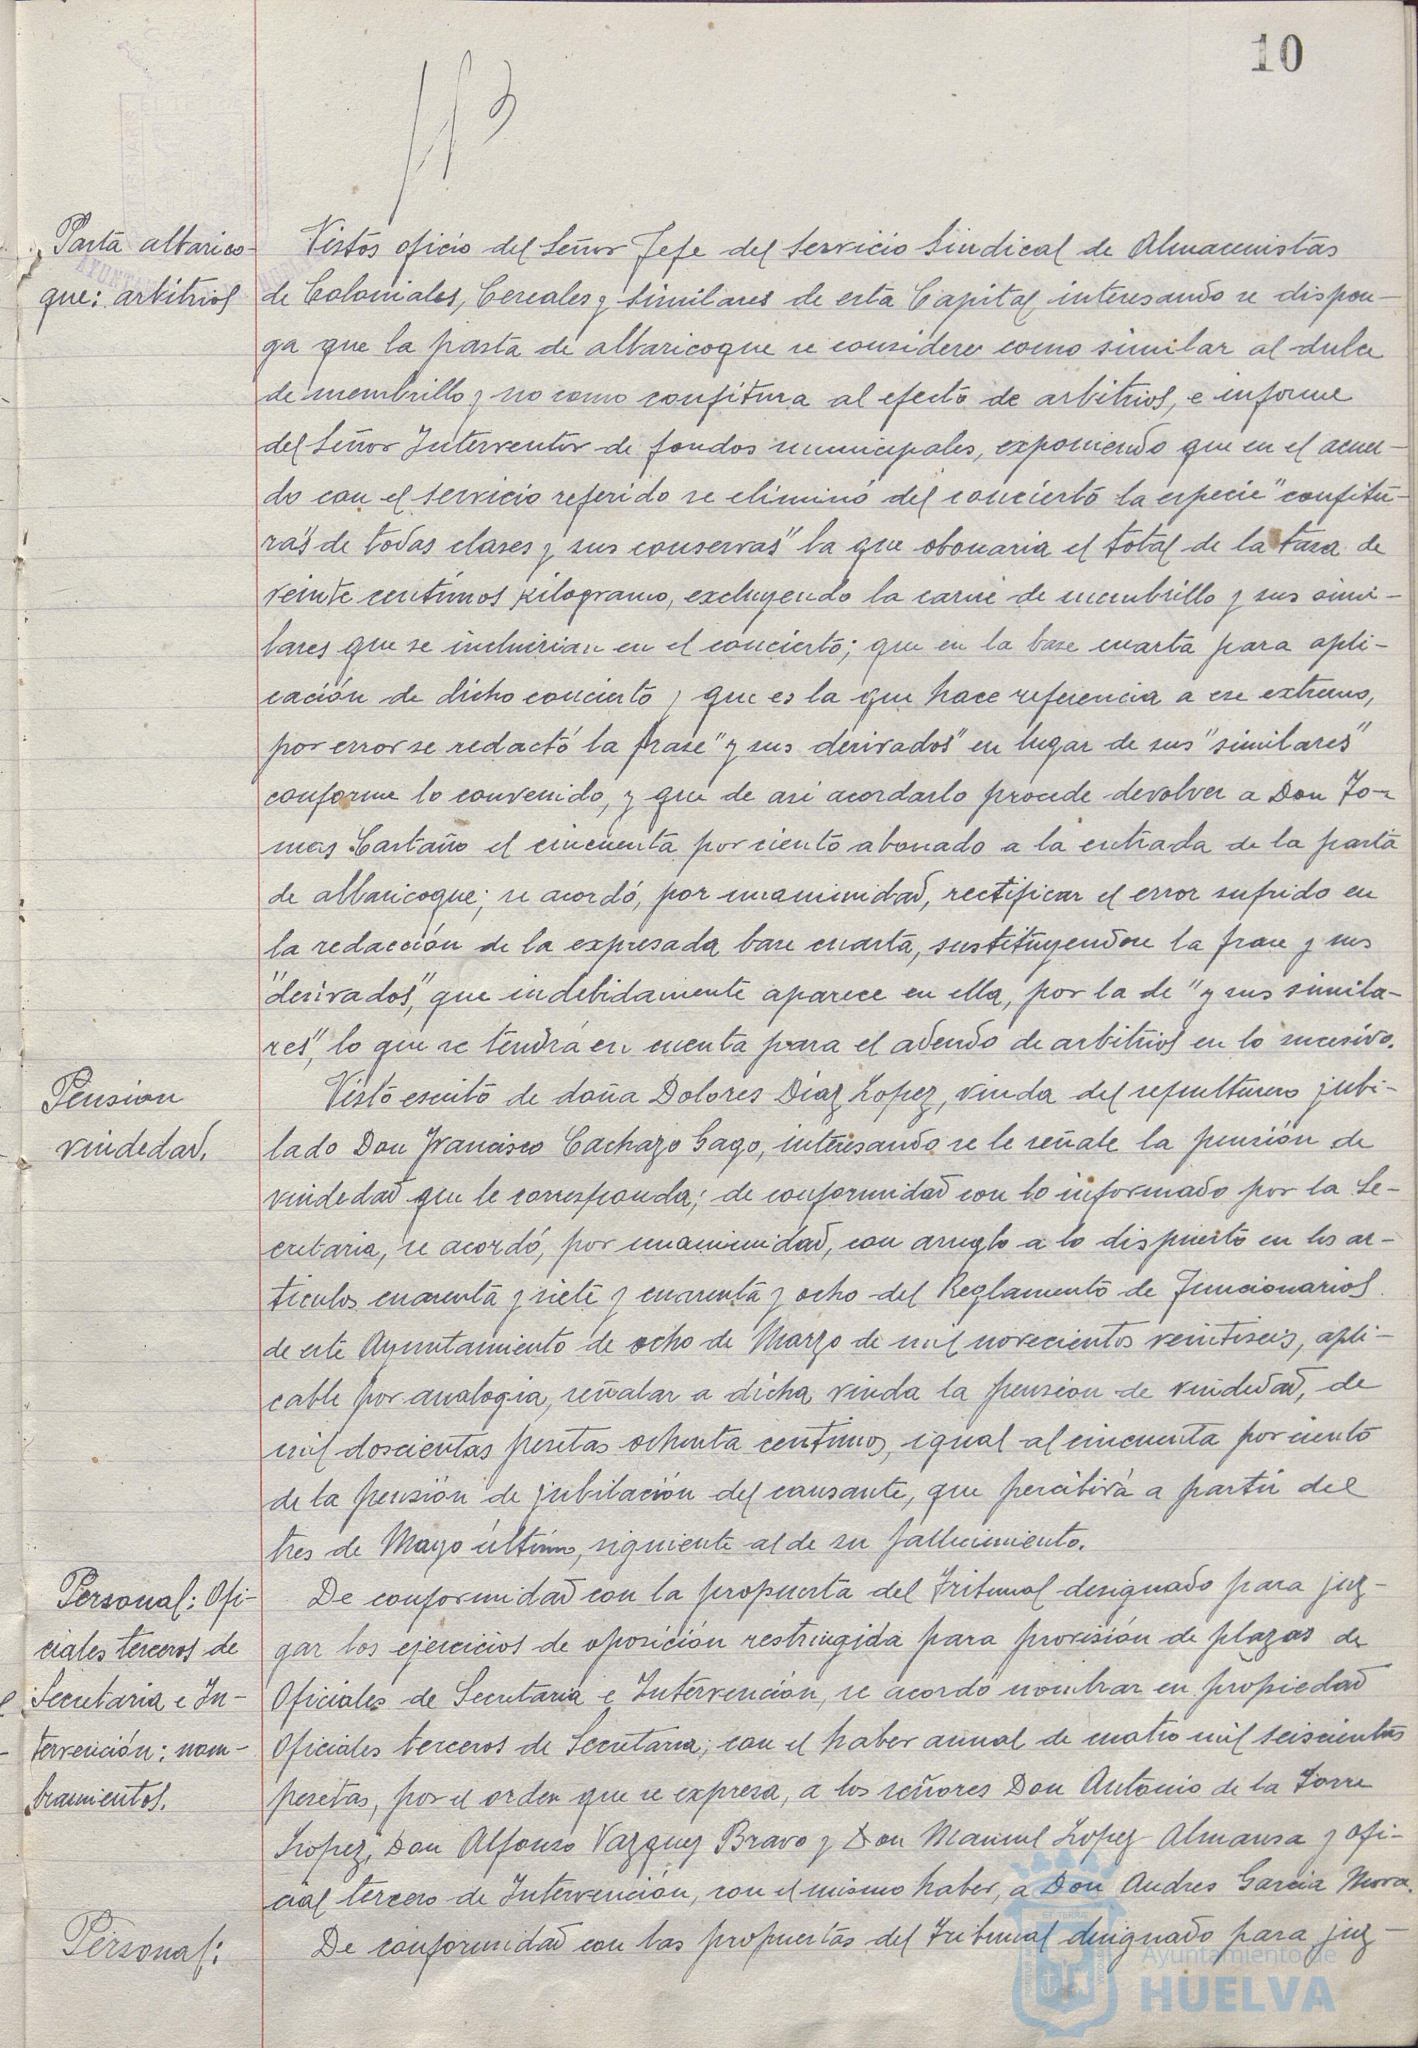 10
Pasta albarico-
que: arbitrios
Vistos oficio del Señor Jefe del Servicio Sindical de Almacenistas
de Coloniales, Cereales y similares de esta Capital, interesando se dispon-
ga que la pasta de albaricoque se considere como similar al dulce
de membrillo y no como confitura al efecto de arbitrios, e informe
del Señor Interventor de fondos municipales, exponiendo que en el acuer-
do con el servicio referido se eliminó del concierto la especie "confitu-
ras de todas clases y sus conservas" la que abonaria el total de la tasa de
veinte centimos kilogramo, excluyendo la carne de membrillo y sus simi-
lares que se incluirian en el concierto; que en la base cuarta para apli-
cación de dicho concierto y que es la que hace referencia a ese extremo,
por error se redactó la frase "y sus derivados" en lugar de sus "similares"
conforme lo convenido, y que de asi acordarlo procede devolver a Don To-
mas Castaño el cincuenta por ciento abonado a la entrada de la pasta
de albaricoque; se acordó, por unanimidad, rectificar el error sufrido en
la redacción de la expresada base cuarta, sustituyendose la frase y sus
"derivados", que indebidamente aparece en ella, por la de "y sus simila-
res", lo que se tendrá en cuenta para el adeudo de arbitrios en lo sucesivo.
Pension
viudedad.
Visto escrito de doña Dolores Diaz Lopez, viuda del sepulturero jubi-
lado Don Francisco Cachazo Gago, interesando se le señale la pensión de
viudedad que le corresponda; de conformidad con lo informado por la Se-
cretaria, se acordó, por unanimidad, con arreglo a lo dispuesto en los ar-
ticulos cuarenta y siete y cuarenta y ocho del Reglamento de Funcionarios
de este Ayuntamiento de ocho de Marzo de mil novecientos veintiseis, apli-
cable por analogia, señalar a dicha viuda la pension de viudedad, de
mil doscientas pesetas ochenta centimos, igual al cincuenta por ciento
de la pensión de jubilación del causante, que percibirá a partir del
tres de Mayo último, siguiente al de su fallecimiento.
Personal: Ofi-
ciales terceros de
Secretaria e In-
tervención: nom-
bramientos.
De conformidad con la propuesta del Tribunal designado para juz-
gar los ejercicios de oposición restringida para provisión de plazas de
Oficiales de Secretaria e Intervención, se acordó nombrar en propiedad
Oficiales terceros de Secretaria, con el haber anual de cuatro mil seiscientas
pesetas, por el orden que se expresa, a los señores Don Antonio de la Torre
Lopez, Don Alfonso Vazquez Bravo y Don Manuel Lopez Almansa y Ofi-
cial tercero de Intervención, con el mismo haber, a Don Andres Garcia Mora.
Personal:
De conformidad con las propuestas del Tribunal designado para juz-
Ayuntamiento de
HUELVA